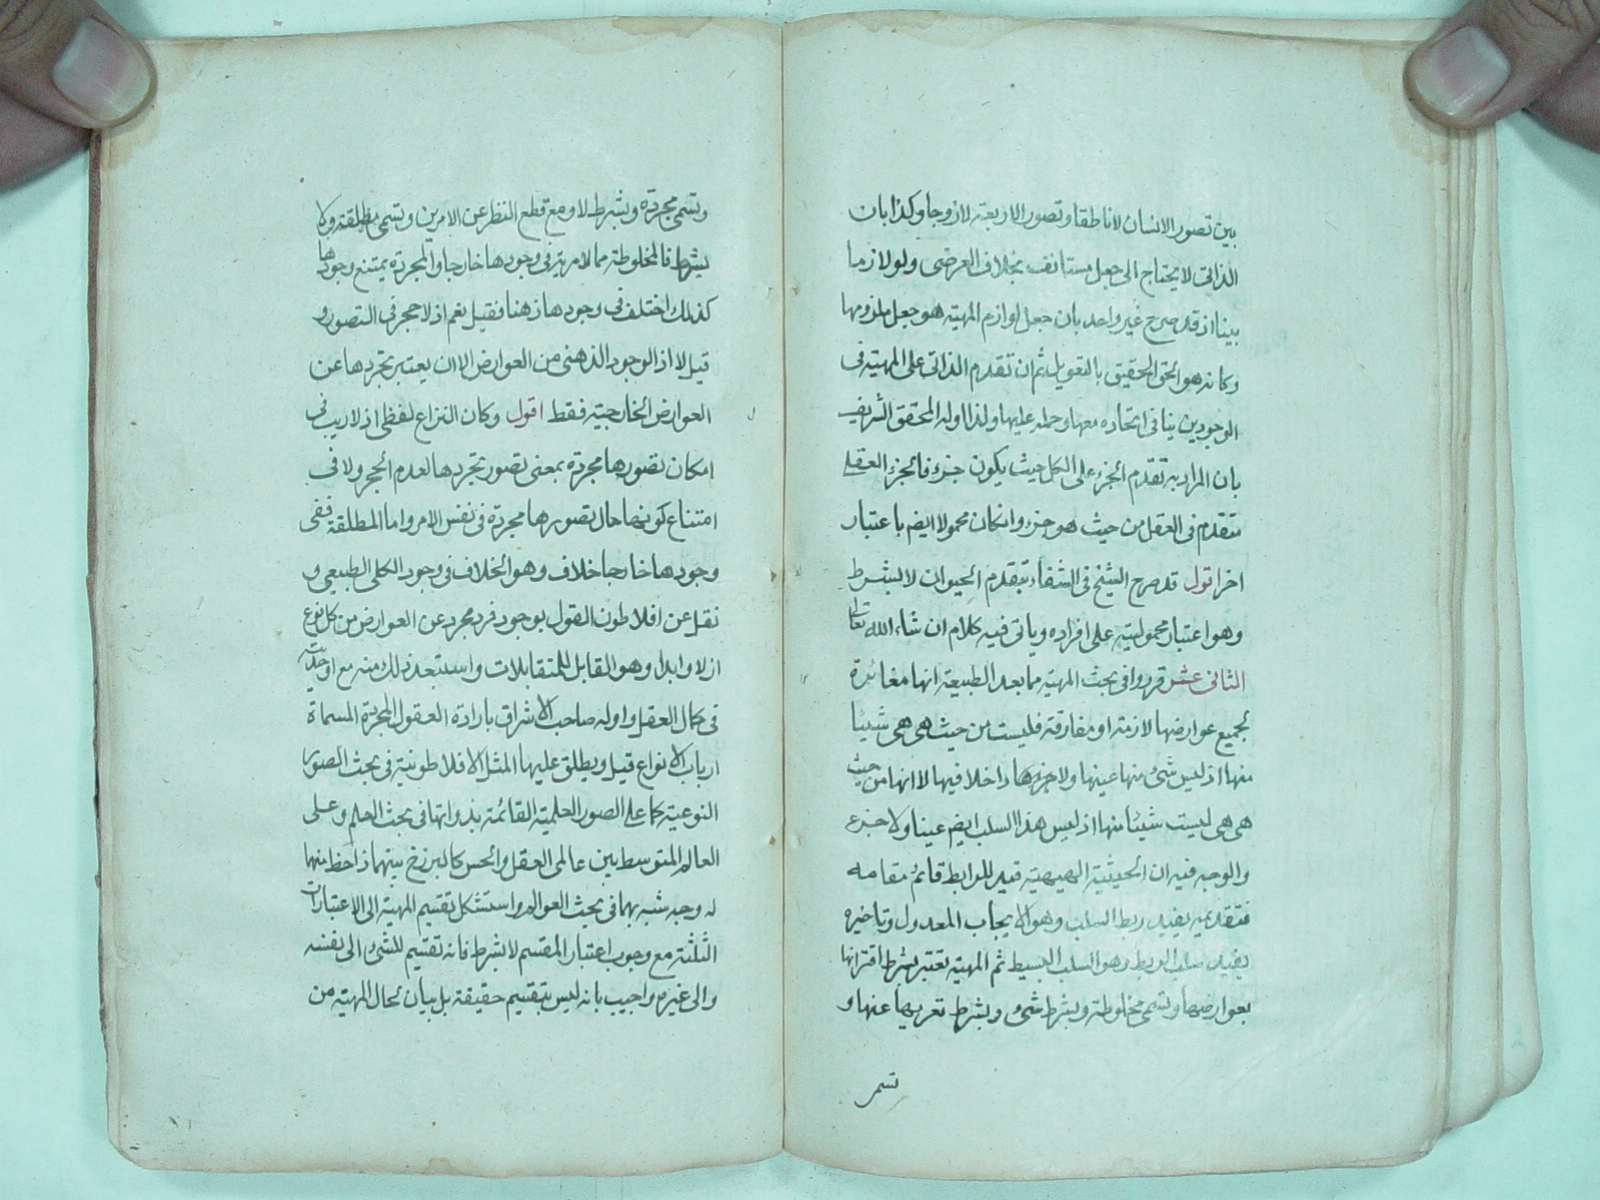 بين تصور الانسان لا ناطقا وتصور الاربعة لا زوجا وكذا بان
الذاتى لا يحتاج الى جعل مستانف بخلاف العرضى ولو لازما
بينا اذ قد صرح غير واحد بان جعل لوازم المهية هو جعل ملزومها
وكانه هو الحق الحقيق بالتعويل ثم ان تقدم الذاتى على المهية فى
الوجودين ينافى اتحاده معها وحمله عليها ولذا اوله المحقق الشريف
بان المراد به تقدم الجزء على الكل حيث يكون جزء فالجزء العقلى
يتقدم فى العقل من حيث هو جزء وان كان محمولا ايضم باعتبار
اخر اقول قد صرح الشيخ فى الشفاء بتقدم الحيوان لا بشرط
وهو اعتبار محموليته على افراده وياتى فيه كلام ان شاء الله تعالى
الثانى عشر قرروا فى بحث المهية مما بعد الطبيعة انها مغائرة
لجميع عوارضها لازمة او مفارقة فليست من حيث هى هى شيئا
منها اذ ليس شئ منها عينها ولا جزءها داخلا فيها لا انها من حيث
هى هى ليست شيئا منها اذ ليس هذا السلب ايضم عينا ولا جزء
والوجه فيه ان الحيثية الهيهية قيد للرابط قائم مقامه
فتقديمه يفيد ربط السلب وهو الايجاب المعدول وتاخيره
يفيد سلب الربط وهو السلب البسيط ثم المهية تعتبر بشرط اقترانها
بعوارضها وتسمى مخلوطة وبشرط شئ وبشرط تعريها عنها و
تسمى
وتسمى مجردة وبشرط لا ومع قطع النظر عن الامرين وتسمى مطلقة ولا
بشرط فالمخلوطة مما لا مرية فى وجودها خارجا والمجردة يمتنع وجودها
كذلك اختلف فى وجودها ذهنا فقيل نعم اذ لا حجر فى التصور و
قيل لا اذ الوجود الذهنى من العوارض الا ان يعتبر تجردها عن
العوارض الخارجية فقط اقول وكان النزاع لفظى اذ لا ريب فى
امكان تصورها مجردة بمعنى تصور تجردها لعدم الحجر ولا فى
امتناع كونها حال تصورها مجردة فى نفس الامر واما المطلقة ففى
وجودها خارجا خلاف وهو الخلاف فى وجود الكلى الطبيعى و
نقل عن افلاطون القول بوجود فرد مجرد عن العوارض من كل نوع
ازلا وابدا وهو القابل للمتقابلات واستبعد ذلك منه مع
فى كمال العقل واوله صاحب الاشراق بارادة العقول المجردة المسماة
ارباب الانواع قيل ويطلق عليها المثل الافلاطونية فى بحث الصور
النوعية كما على الصور العلمية القائمة بذواتها فى بحث العلم وعلى
العالم المتوسط بين عالمى العقل والحس كالبرزخ بينهما ذا حظ منهما
له وجه شبه بهما فى بحث العوالم واستشكل تقسيم المهية الى الاعتبارات
الثلثة مع وجوب اعتبار المقسم لا بشرط فانه تقسيم للشئ الى نفسه
والى غيره واجيب بانه ليس بتقسيم حقيقة بل بيان لحال المهية من